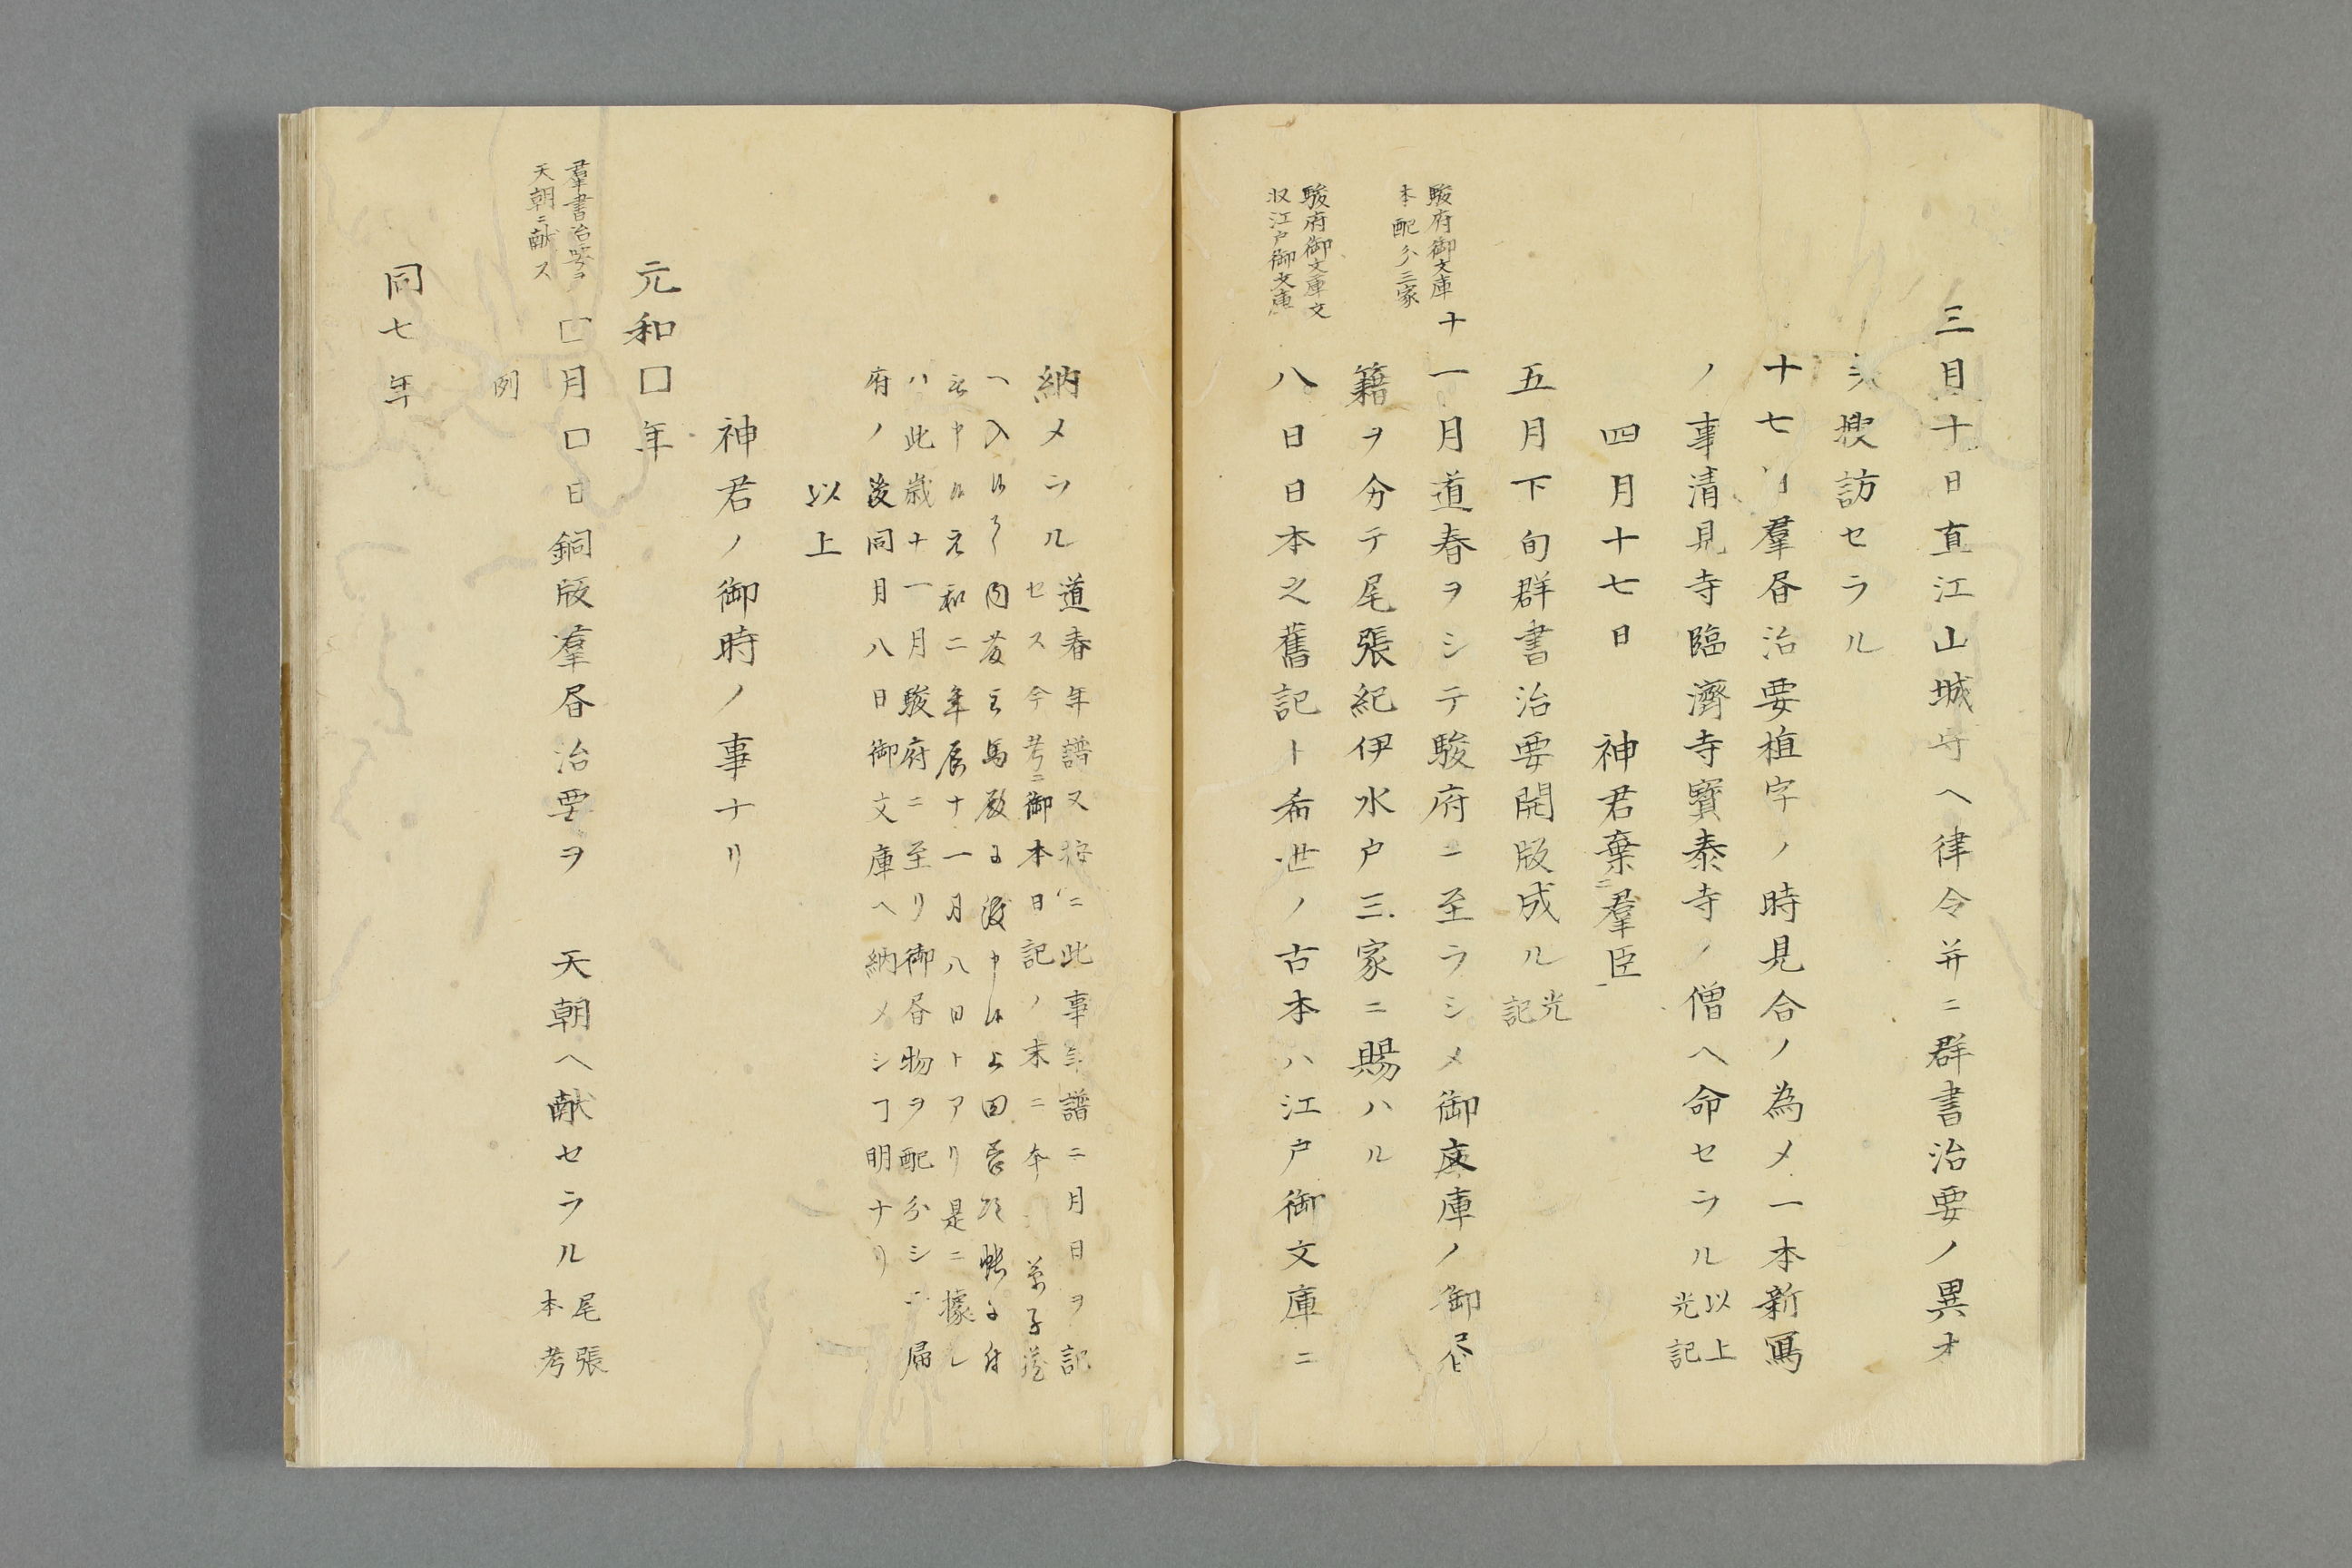 三月十日直江山城守ヘ律令并ニ群書治要ノ異本
ヲ捜訪セラル
十七日羣書治要植字ノ時見合ノ為メ一本新寫
ノ事清見寺臨濟寺寶泰寺ノ僧ヘ命セラル以上光記
四月十七日 神君棄ニ羣臣
五月下旬群書治要開版成ル光記
駿府御文庫
本配分三家
十一月道春ヲシテ駿府ニ至ラシメ御文庫ノ御書
籍ヲ分テ尾張紀伊水戸三家ニ賜ハル
駿府御文庫文
収江戸御文庫
八日日本之舊記ト希世ノ古本ハ江戸御文庫ニ
納メラル道春年譜又按ニ此事年譜ニ月日ヲ記
セス今考ニ御本日記ノ末ニ
ヘ入
元和二年辰十一月八日トアリ是ニ據レ
ハ此歳十一月駿府ニ至リ御書物ヲ配分シ
府ノ後同月八日御文庫ヘ納メシヿ明ナリ
以上
神君ノ御時ノ事ナリ
元和□年
羣書治要ヲ
天朝ニ献ス
□月□日銅版羣書治要ヲ 天朝ヘ献セラル尾張本考
例
同七年